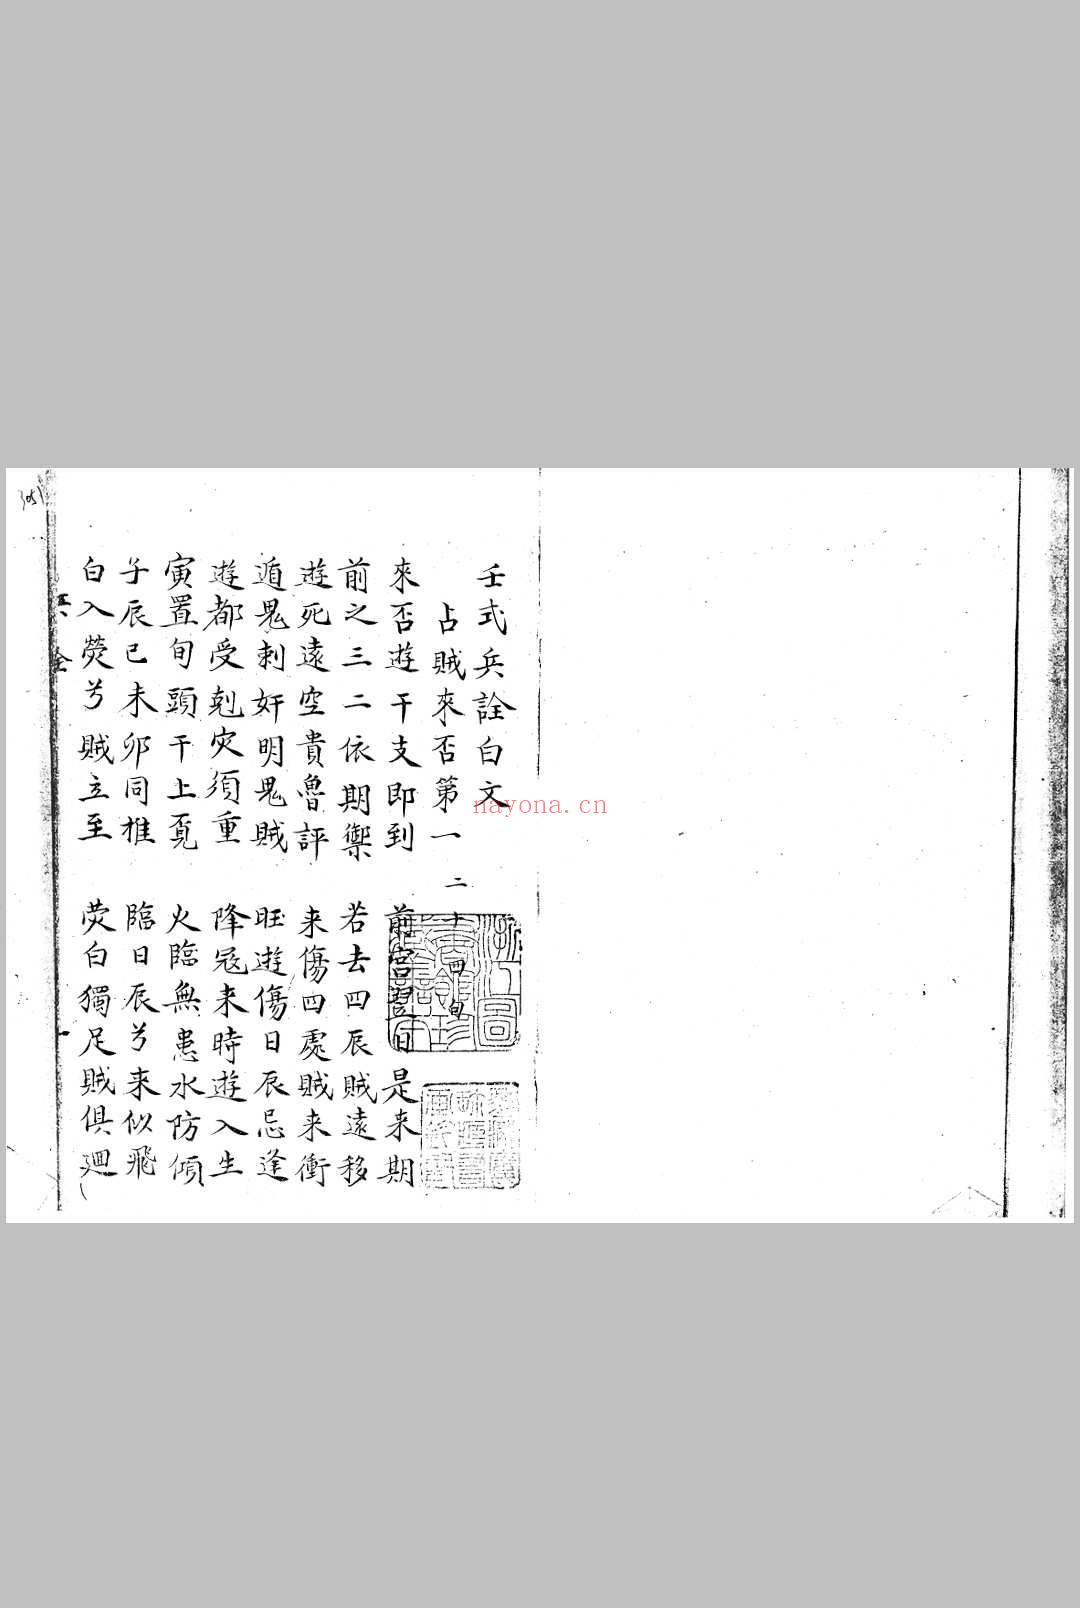 壬式兵詮白文
占賊來否第一 二十四句
來否遊干支即到 前宮翌日是来期
前之三二依期禦 若去四辰賊遠移
遊死遠空貴魯評 来傷四處賊来衝
遁鬼刺奸明鬼賊 旺遊傷日辰忌逢
遊都受剋灾須重 降冦来時遊入生
寅置旬頭干上覔 火臨無患水防傾
子辰巳未卯同推 臨日辰兮来似飛
白入熒兮賊立至 熒白獨足賊俱廻
全
一
nayona.cn